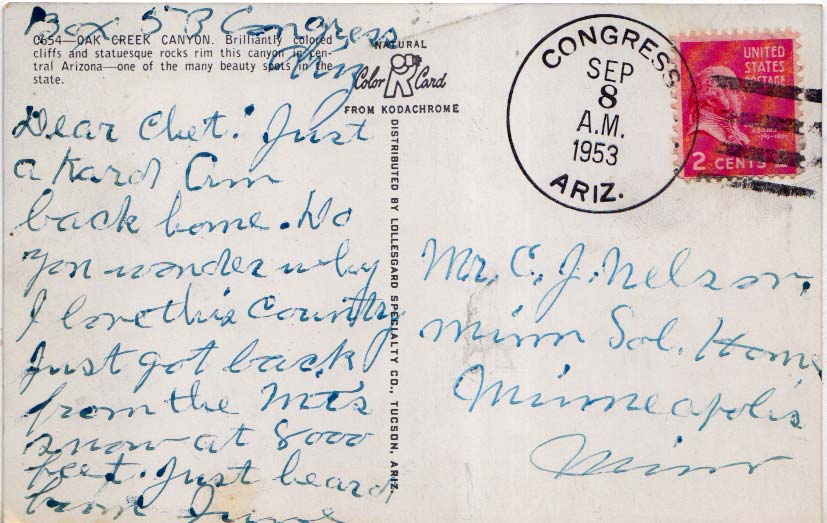 Box 5B Congress
Ariz
C654—OAK CREEK CANYON. Brilliantly colored
cliffs and statuesque rocks rim this canyon in cen-
tral Arizona—one of the many beauty spots in the
state.
Dear Chet. Just
a Kard Am
back home. Do
you wonder why
I love this Country
Just got back
from the Mt's
snow at 8000
feet. Just heard
from June
NATURAL
Color Card
FROM KODACHROME
DISTRIBUTED BY LOLLESGARD SPECIALTY CO., TUCSON, ARIZ.
CONGRESS
SEP
8
A.M.
1953
ARIZ.
UNITED
STATES
POSTAGE
ADAMS
2 CENTS
Mr. C. J. Nelson.
Minn Sol. Home
Minneapolis
Minn